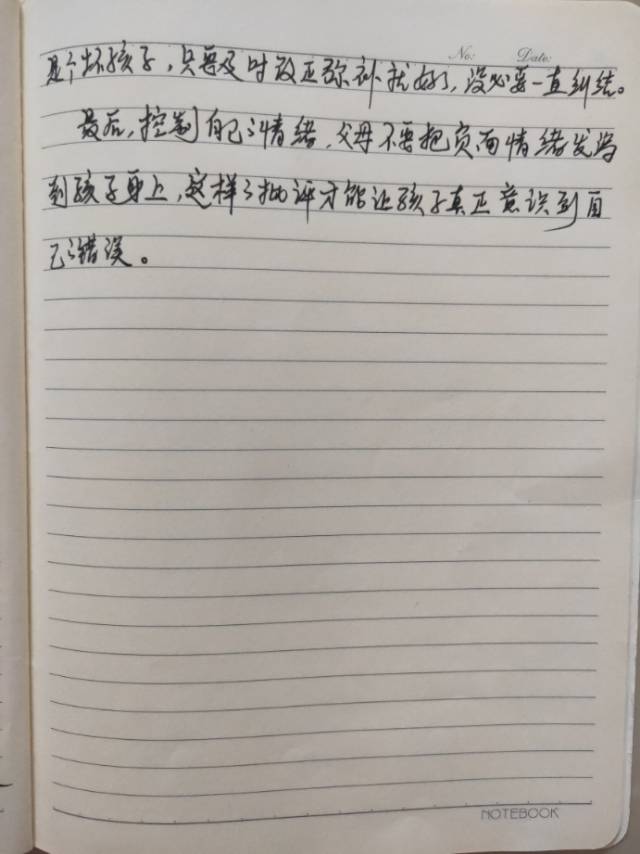 No: Date:
是个坏孩子,只要及时改正弥补就好了,没必要一直纠结。
最后,控制自己的情绪,父母不要把负面情绪发泄
到孩子身上,这样的批评才能让孩子真正意识到自
己的错误。
NOTEBOOK